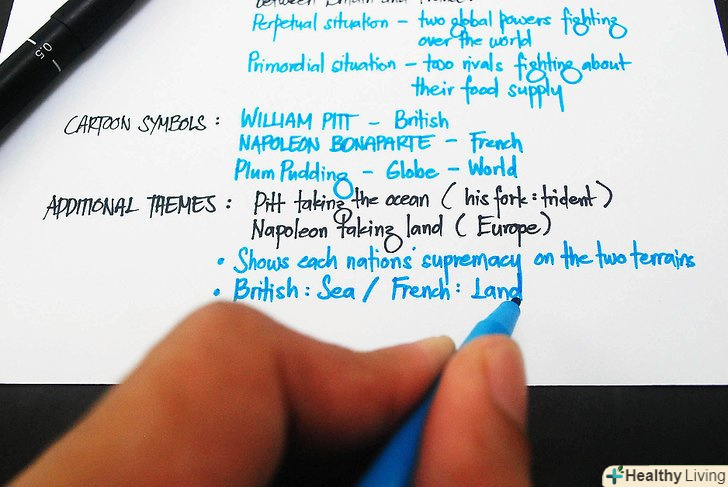 between Britain and France.
Perpetual situation – two global powers fighting
over the world
Primordial situation – two rivals fighting about
their food supply
CARTOON SYMBOLS : WILLIAM PITT – British
NAPOLEON BONAPARTE – French
Plum Pudding – Globe – World
ADDITIONAL THEMES : Pitt taking the ocean ( his fork : trident )
Napoleon taking land ( Europe )
• Shows each nations' supremacy on the two terrains
• British : Sea / French : Land
0.5
Healthy Living